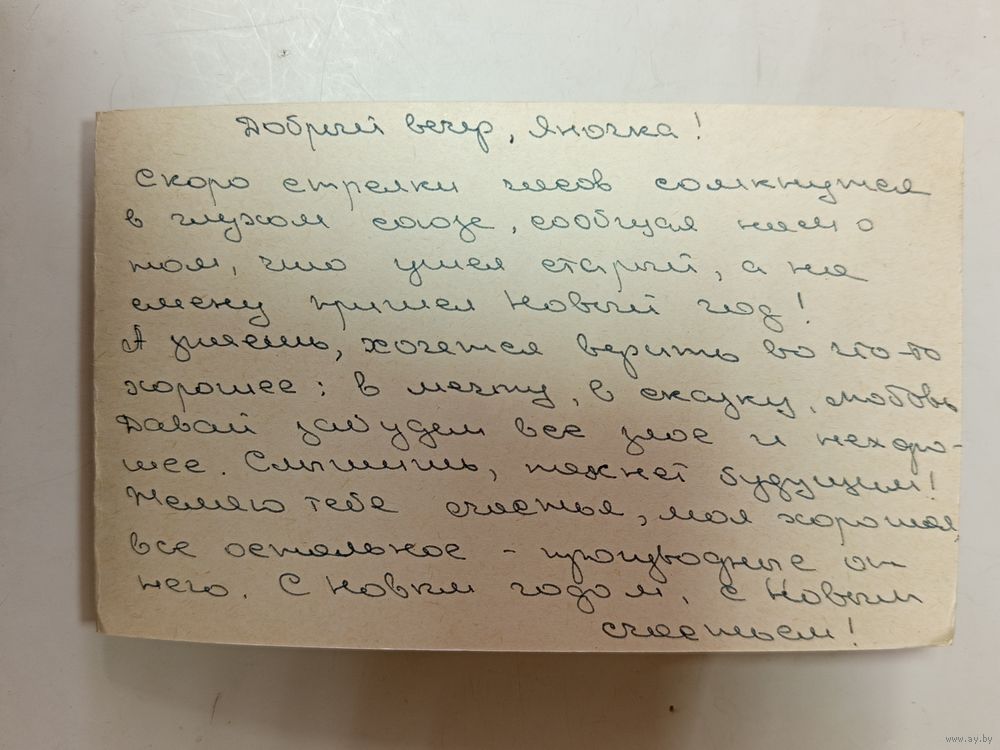 Добрый вечер, Яночка!
Скоро стрелки часов сомкнутся
в глухом союзе, сообщая нам о
том, что ушел старый, а на
смену пришел Новый год!
А знаешь, хочется верить во что-то
хорошее: в мечту, в сказку, любовь
Давай забудем все злое и нехоро-
шее. Слышишь, пахнет будущим!
Желаю тебе счастья, моя хорошая,
все остальное - производные от
него. С Новым годом, с Новым
счастьем!
www.ay.by